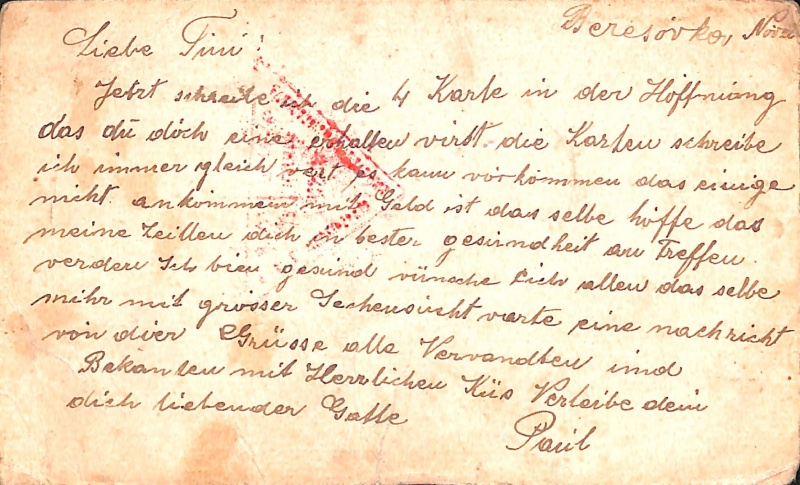 Beresovka, Nov
Liebe Tini!
Jetzt schreibe ich die 4 Karte in der Hoffnung
das du doch eine erhalten virst die Karten schreibe
ich immer gleich veit es kan vorkommen das einige
nicht ankommen mit Geld ist das selbe hoffe das
meine Zeillen dich in bester gesundheit an Treffen
verden Ich bien gesund vünsche Eich allen das selbe
mihr mit grosser Sehensucht varte eine nachricht
von dier Grüsse alle Vervandten und
Bekanten mit Herrlichen Küs Verleibe dein
dich liebender Gatte
Paul